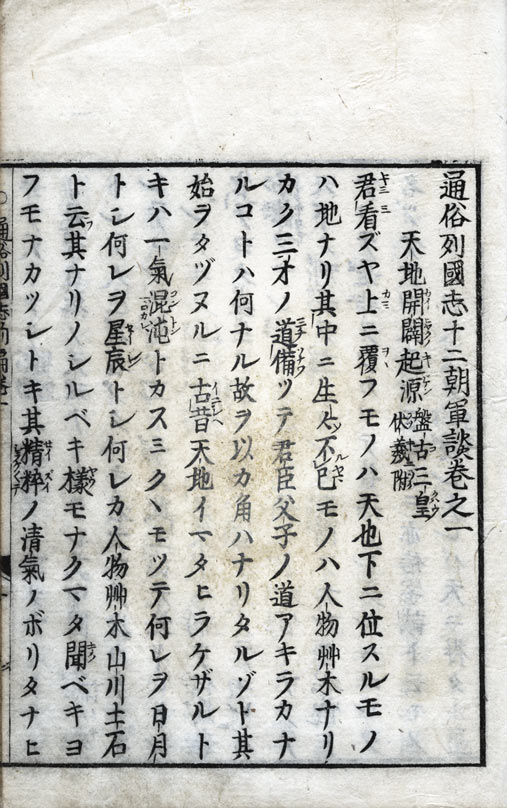 通俗列國志十二朝軍談卷之一
天地開闢起源 盤古三皇伏羲附
君看ズヤ上ニ覆フモノハ天也下ニ位スルモノ
ハ地ナリ其中ニ生〆不已モノハ人物艸木ナリ
カク三才ノ道備ツテ君臣父子ノ道アキラカナ
ルコトハ何ナル故ヲ以カ角ハナリタルゾト其
始ヲタヅヌルニ古昔天地イマタヒラケザルト
キハ一氣混沌トカスミクヽモツテ何レヲ日月
トシ何レヲ星辰トシ何レカ人物艸木山川土石
ト云其ナリノシルベキ樣モナクマタ聞ベキヨ
フモナカツシトキ其精粹ノ清氣ノボリタナヒ
通俗列國志前編卷一